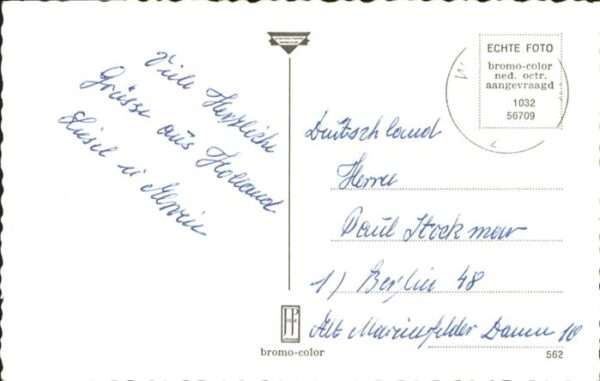 Viele Herzliche
Grüsse aus Holland
Liesel u
ECHTE FOTO
bromo-color
ned. octr.
aangevraagd
1032
56709
Deutschland
Herrn
Paul Stockmar
1) Berlin 48
Alt Marienfelder Damm 10
bromo-color
562